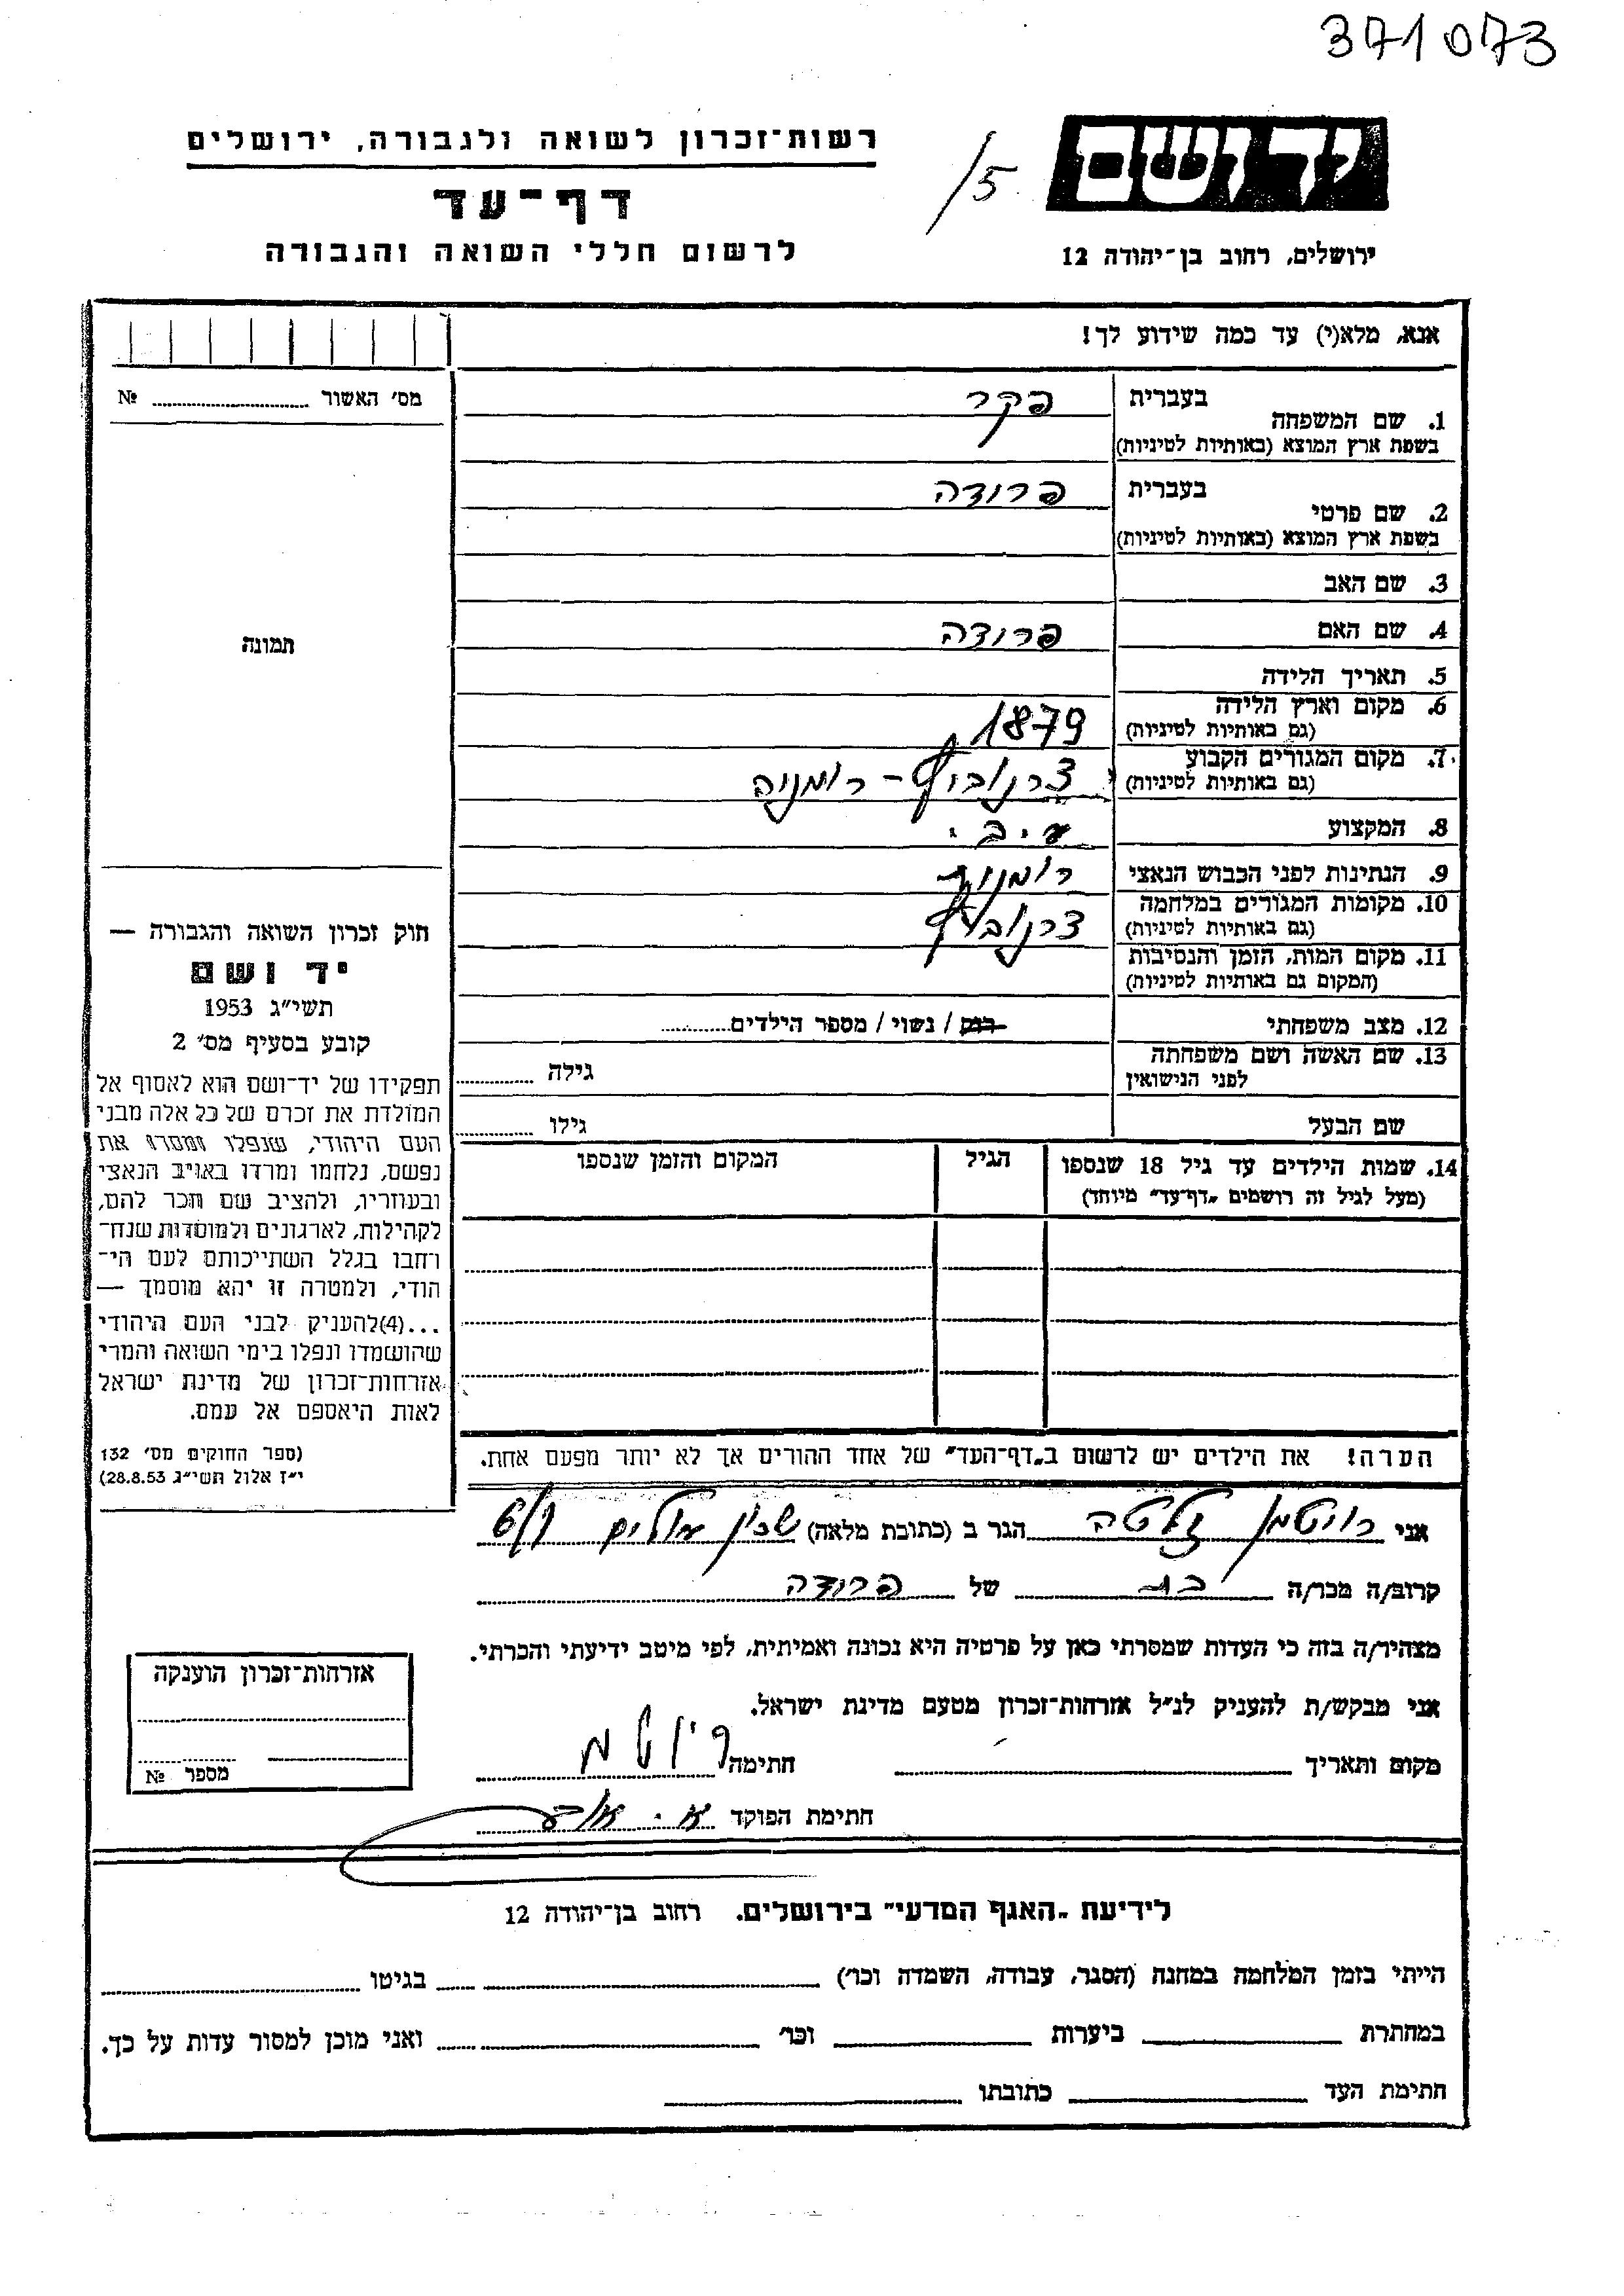 371073
יד ושם
רשות־זכרון לשואה ולגבורה, ירושלים
/5
דף־עד
לרשום חללי השואה והגבורה
ירושלים, רחוב בן־יהודה 12
אנא, מלא(י) עד כמה שידוע לך!
מס׳ האשור № 
1. שם המשפחה בעברית פקר
בשפת ארץ המוצא (באותיות לטיניות)
2. שם פרטי בעברית פרודה
בשפת ארץ המוצא (באותיות לטיניות)
3. שם האב
4. שם האם פרודה
5. תאריך הלידה
6. מקום וארץ הלידה 1879
(גם באותיות לטיניות)
7. מקום המגורים הקבוע צרנוביץ - רומניה
(גם באותיות לטיניות)
8. המקצוע ע.ב.
9. הנתינות לפני הכבוש הנאצי רומנית
10. מקומות המגורים במלחמה צרנוביץ
(גם באותיות לטיניות)
11. מקום המות, הזמן והנסיבות
(המקום גם באותיות לטיניות)
12. מצב משפחתי רווק / נשוי / מספר הילדים
13. שם האשה ושם משפחתה גילה
לפני הנישואין
שם הבעל גילו
14. שמות הילדים עד גיל 18 שנספו הגיל המקום והזמן שנספו
(מעל לגיל זה רושמים „דף־עד” מיוחד)
הערה! את הילדים יש לרשום ב„דף־העד” של אחד ההורים אך לא יותר מפעם אחת.
תמונה
חוק זכרון השואה והגבורה —
יד ושם
תשי״ג 1953
קובע בסעיף מס׳ 2
תפקידו של יד־ושם הוא לאסוף אל
המולדת את זכרם של כל אלה מבני
העם היהודי, שנפלו ומסרו את
נפשם, נלחמו ומרדו באויב הנאצי
ובעוזריו, ולהציב שם וזכר להם,
לקהילות, לארגונים ולמוסדות שנח־
רחבו בגלל השתייכותם לעם הי־
הודי, ולמטרה זו יהא מוסמך —
...(4)להעניק לבני העם היהודי
שהושמדו ונפלו בימי השואה והמרי
אזרחות־זכרון של מדינת ישראל
לאות היאספם אל עמם.
(ספר החוקים מס׳ 132
י״ז אלול תשי״ג 28.8.53)
אני רויטמן זלטה הגר ב (כתובת מלאה) שכון עולים 6/1
קרוב/ה מכר/ה בת של פרודה
מצהיר/ה בזה כי העדות שמסרתי כאן על פרטיה היא נכונה ואמיתית, לפי מיטב ידיעתי והכרתי.
אני מבקש/ת להעניק לנ״ל אזרחות־זכרון מטעם מדינת ישראל.
מקום ותאריך חתימה
חתימת הפוקד
אזרחות־זכרון הוענקה
מספר №
לידיעת „האגף המדעי” בירושלים. רחוב בן־יהודה 12
הייתי בזמן המלחמה במחנה (הסגר, עבודה, השמדה וכו׳) בגיטו
במחתרת ביערות וכו׳ ואני מוכן למסור עדות על כך.
חתימת העד כתובתו